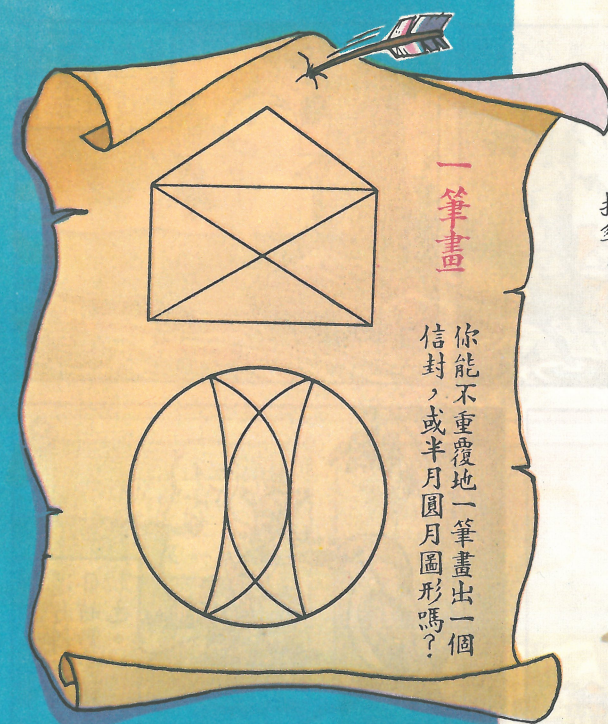 一筆畫
你能不重覆地一筆畫出一個
信封，或半月圓月圖形嗎？